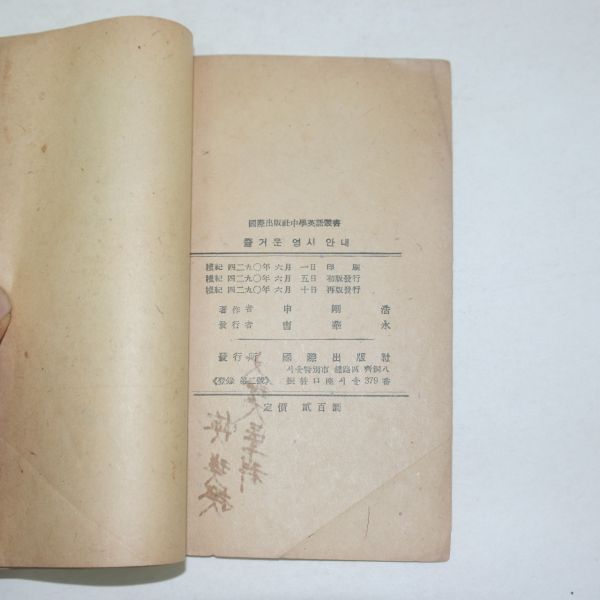 國際出版社中學英語叢書
즐거운 영시 안내
檀紀 四二九〇年 六月 一日 印刷
檀紀 四二九〇年 六月 五日 初版發行
檀紀 四二九〇年 六月 十日 再版發行
著作者 申 浩
發行者 永
發行所 國際出版社
서울特別市 鍾路區 齊洞八
《登錄 第二號》 振替口座서울 379番
定價 貳百圜